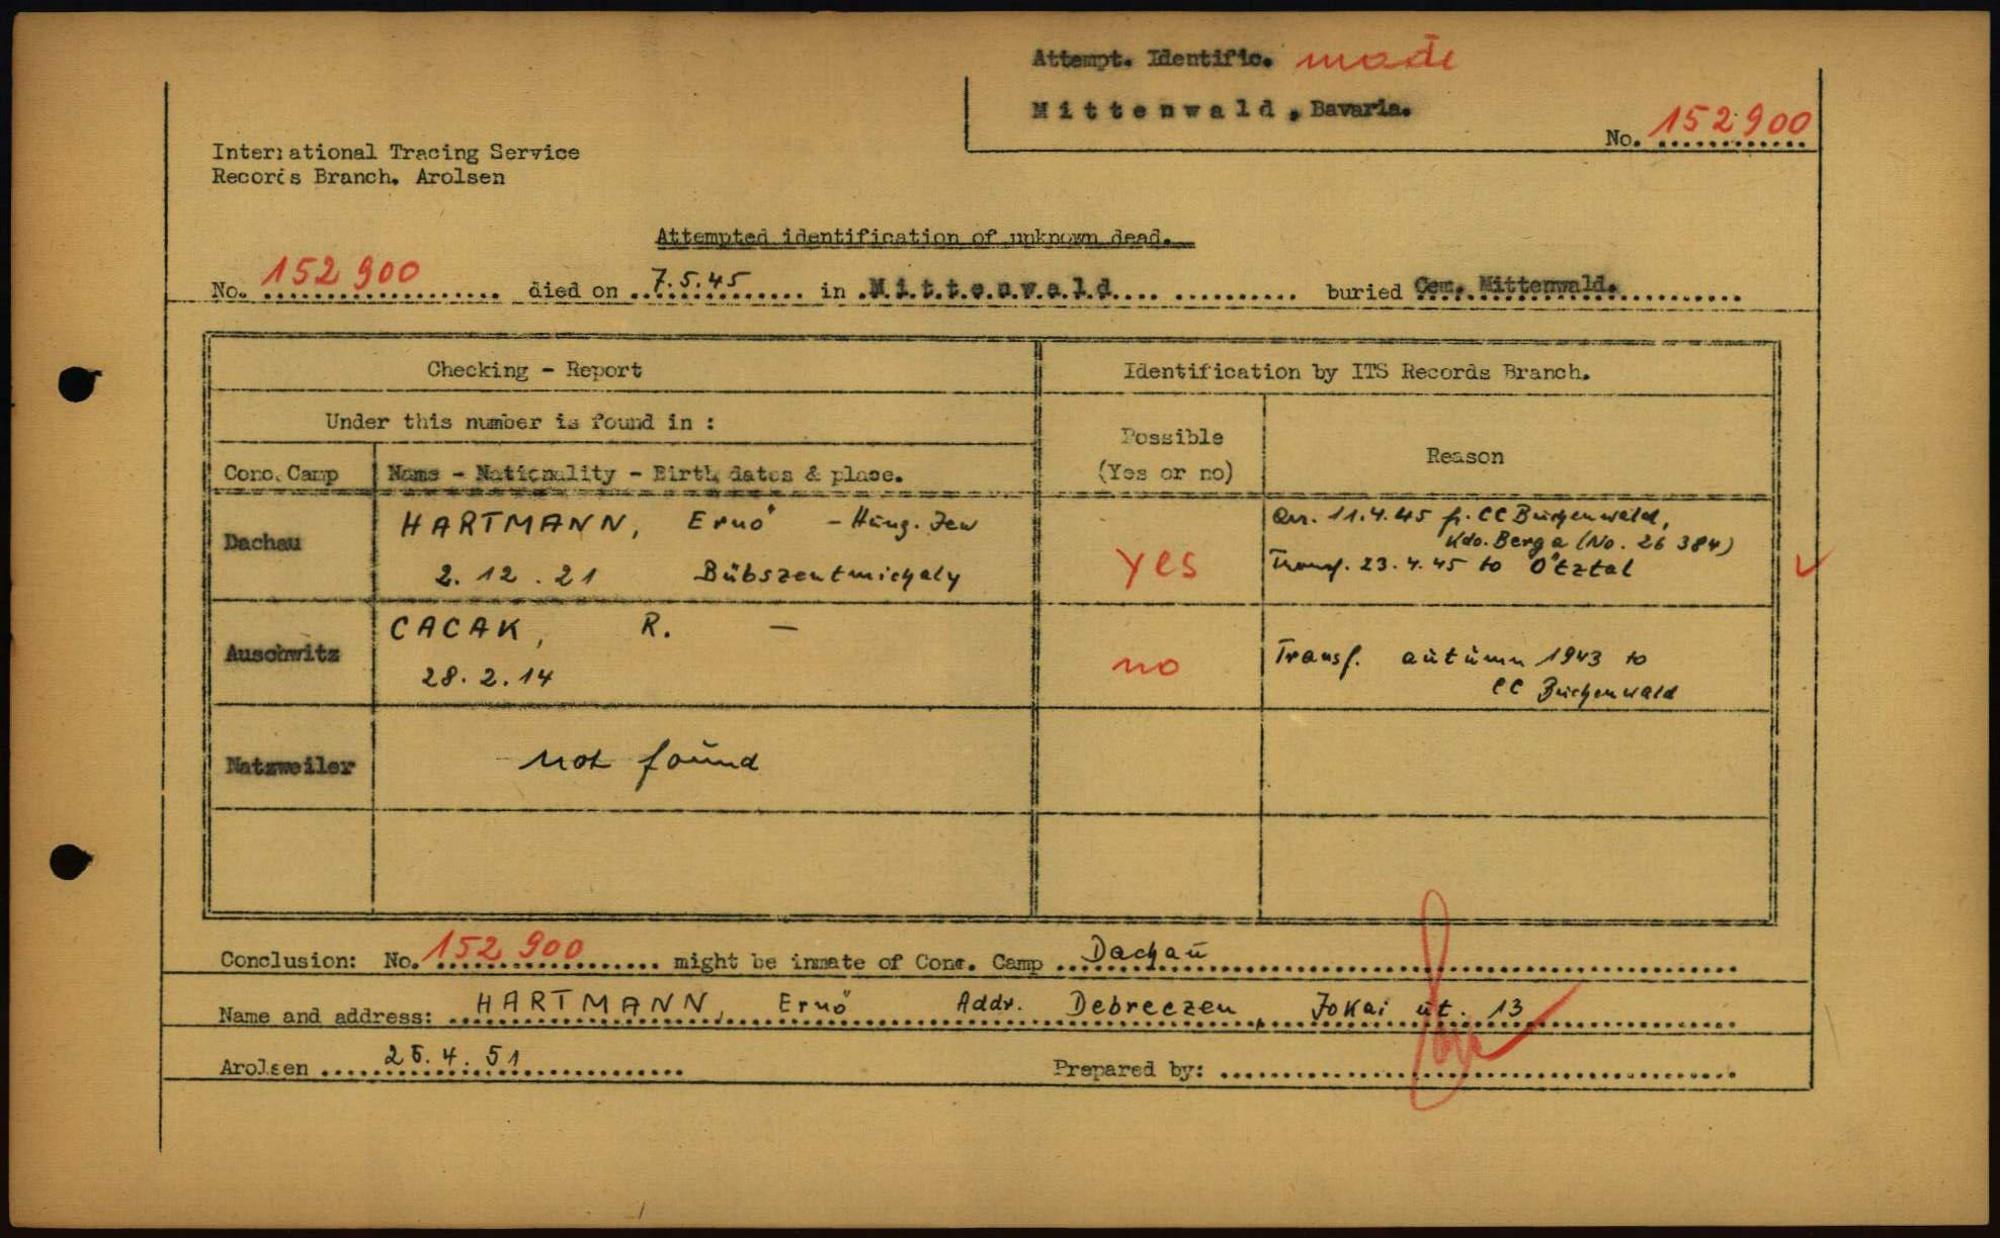 Attempt. Identific. made
Mittenwald, Bavaria.
No. 152 900
International Tracing Service
Records Branch. Arolsen
Attempted identification of unknown dead.
No. 152 900 died on 7.5.45 in Mittenwald buried Cem. Mittenwald.
Checking - Report
Identification by ITS Records Branch.
Under this number is found in :
Possible
(Yes or no)
Reason
Conc. Camp
Name - Nationality - Birth dates & place.
Dachau
HARTMANN, Ernö - Hung. Jew
2.12.21 Bübszentmichaly
yes
Arr. 11.4.45 fr. CC Buchenwald,
Kdo. Berga (No. 26 384)
Transf. 23.4.45 to Ötztal
Auschwitz
CACAK, R. -
28.2.14
no
Transf. autumn 1943 to
CC Buchenwald
Natzweiler
not found
Conclusion: No. 152 900 might be inmate of Conc. Camp Dachau
Name and address: HARTMANN, Ernö Addr. Debreczen, Jokai ut. 13
Arolsen 26.4.51
Prepared by: